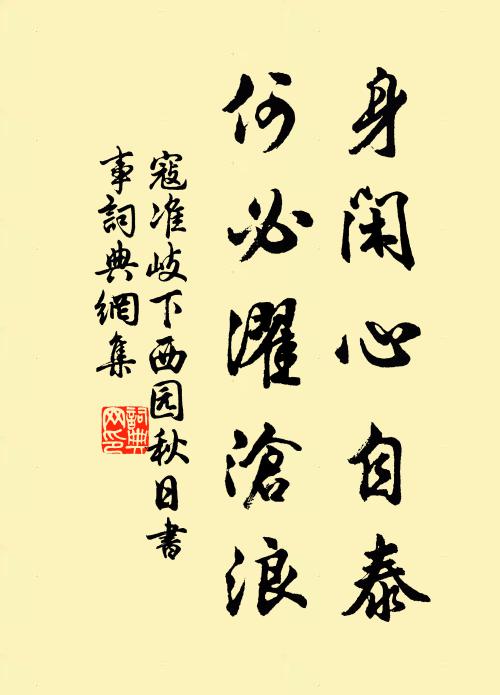 身閑心自泰
何必濯滄浪
寇准岐下西园秋日書
事詞典網集
詞典网印